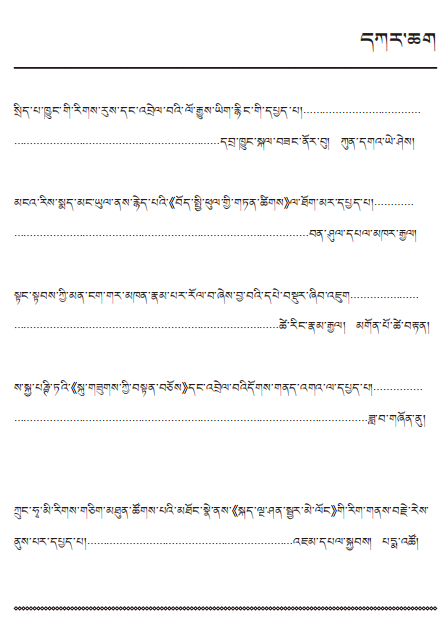 དཀར་ཆག
སྲིད་པ་ཁྱུང་གི་རིགས་རུས་དང་འབྲེལ་བའི་ལོ་རྒྱུས་ཡིག་རྙིང་གི་དཔྱད་པ།……………………………
…………………………………………………དབྲ་ཁྱུང་སྐལ་བཟང་ནོར་བུ། ཀུན་དགའ་ཡེ་ཤེས།
མངའ་རིས་སྨད་མང་ཡུལ་ནས་རྙེད་པའི་《བོད་སྤྱི་ཕུལ་གྱི་གཏན་ཚིགས》ལ་ཐོག་མར་དཔྱད་པ།…………
………………………………………………………………………བན་ཤུལ་དཔལ་མཁར་རྒྱལ།
སྟང་སྟབས་ཀྱི་མན་ངག་གར་མཁན་རྣམ་པར་རོལ་བ་ཞེས་བྱ་བའི་དཔེ་བསྡུར་ཞིབ་འཇུག…………………
…………………………………………………………………ཚེ་རིང་རྣམ་རྒྱལ། མགོན་པོ་ཚེ་བརྟན།
ས་སྐྱ་པཎྜི་ཏའི་《སྐུ་གཟུགས་ཀྱི་བསྟན་བཅོས》དང་འབྲེལ་བའི་དོགས་གནད་འགའ་ལ་དཔྱད་པ།……………
……………………………………………………………………………………ཟླ་བ་གཞོན་ནུ།
ཀྲུང་ཧྭ་མི་རིགས་གཅིག་མཐུན་ཚོགས་པའི་མཐོང་སྣེ་ནས་《སྐད་ལྔ་ཤན་སྦྱར་མེ་ལོང》གི་རིག་གནས་བརྗེ་རེས་
ནུས་པར་དཔྱད་པ།…………………………………………………འཇམ་དཔལ་སྐྱབས། པདྨ་འཚོ།